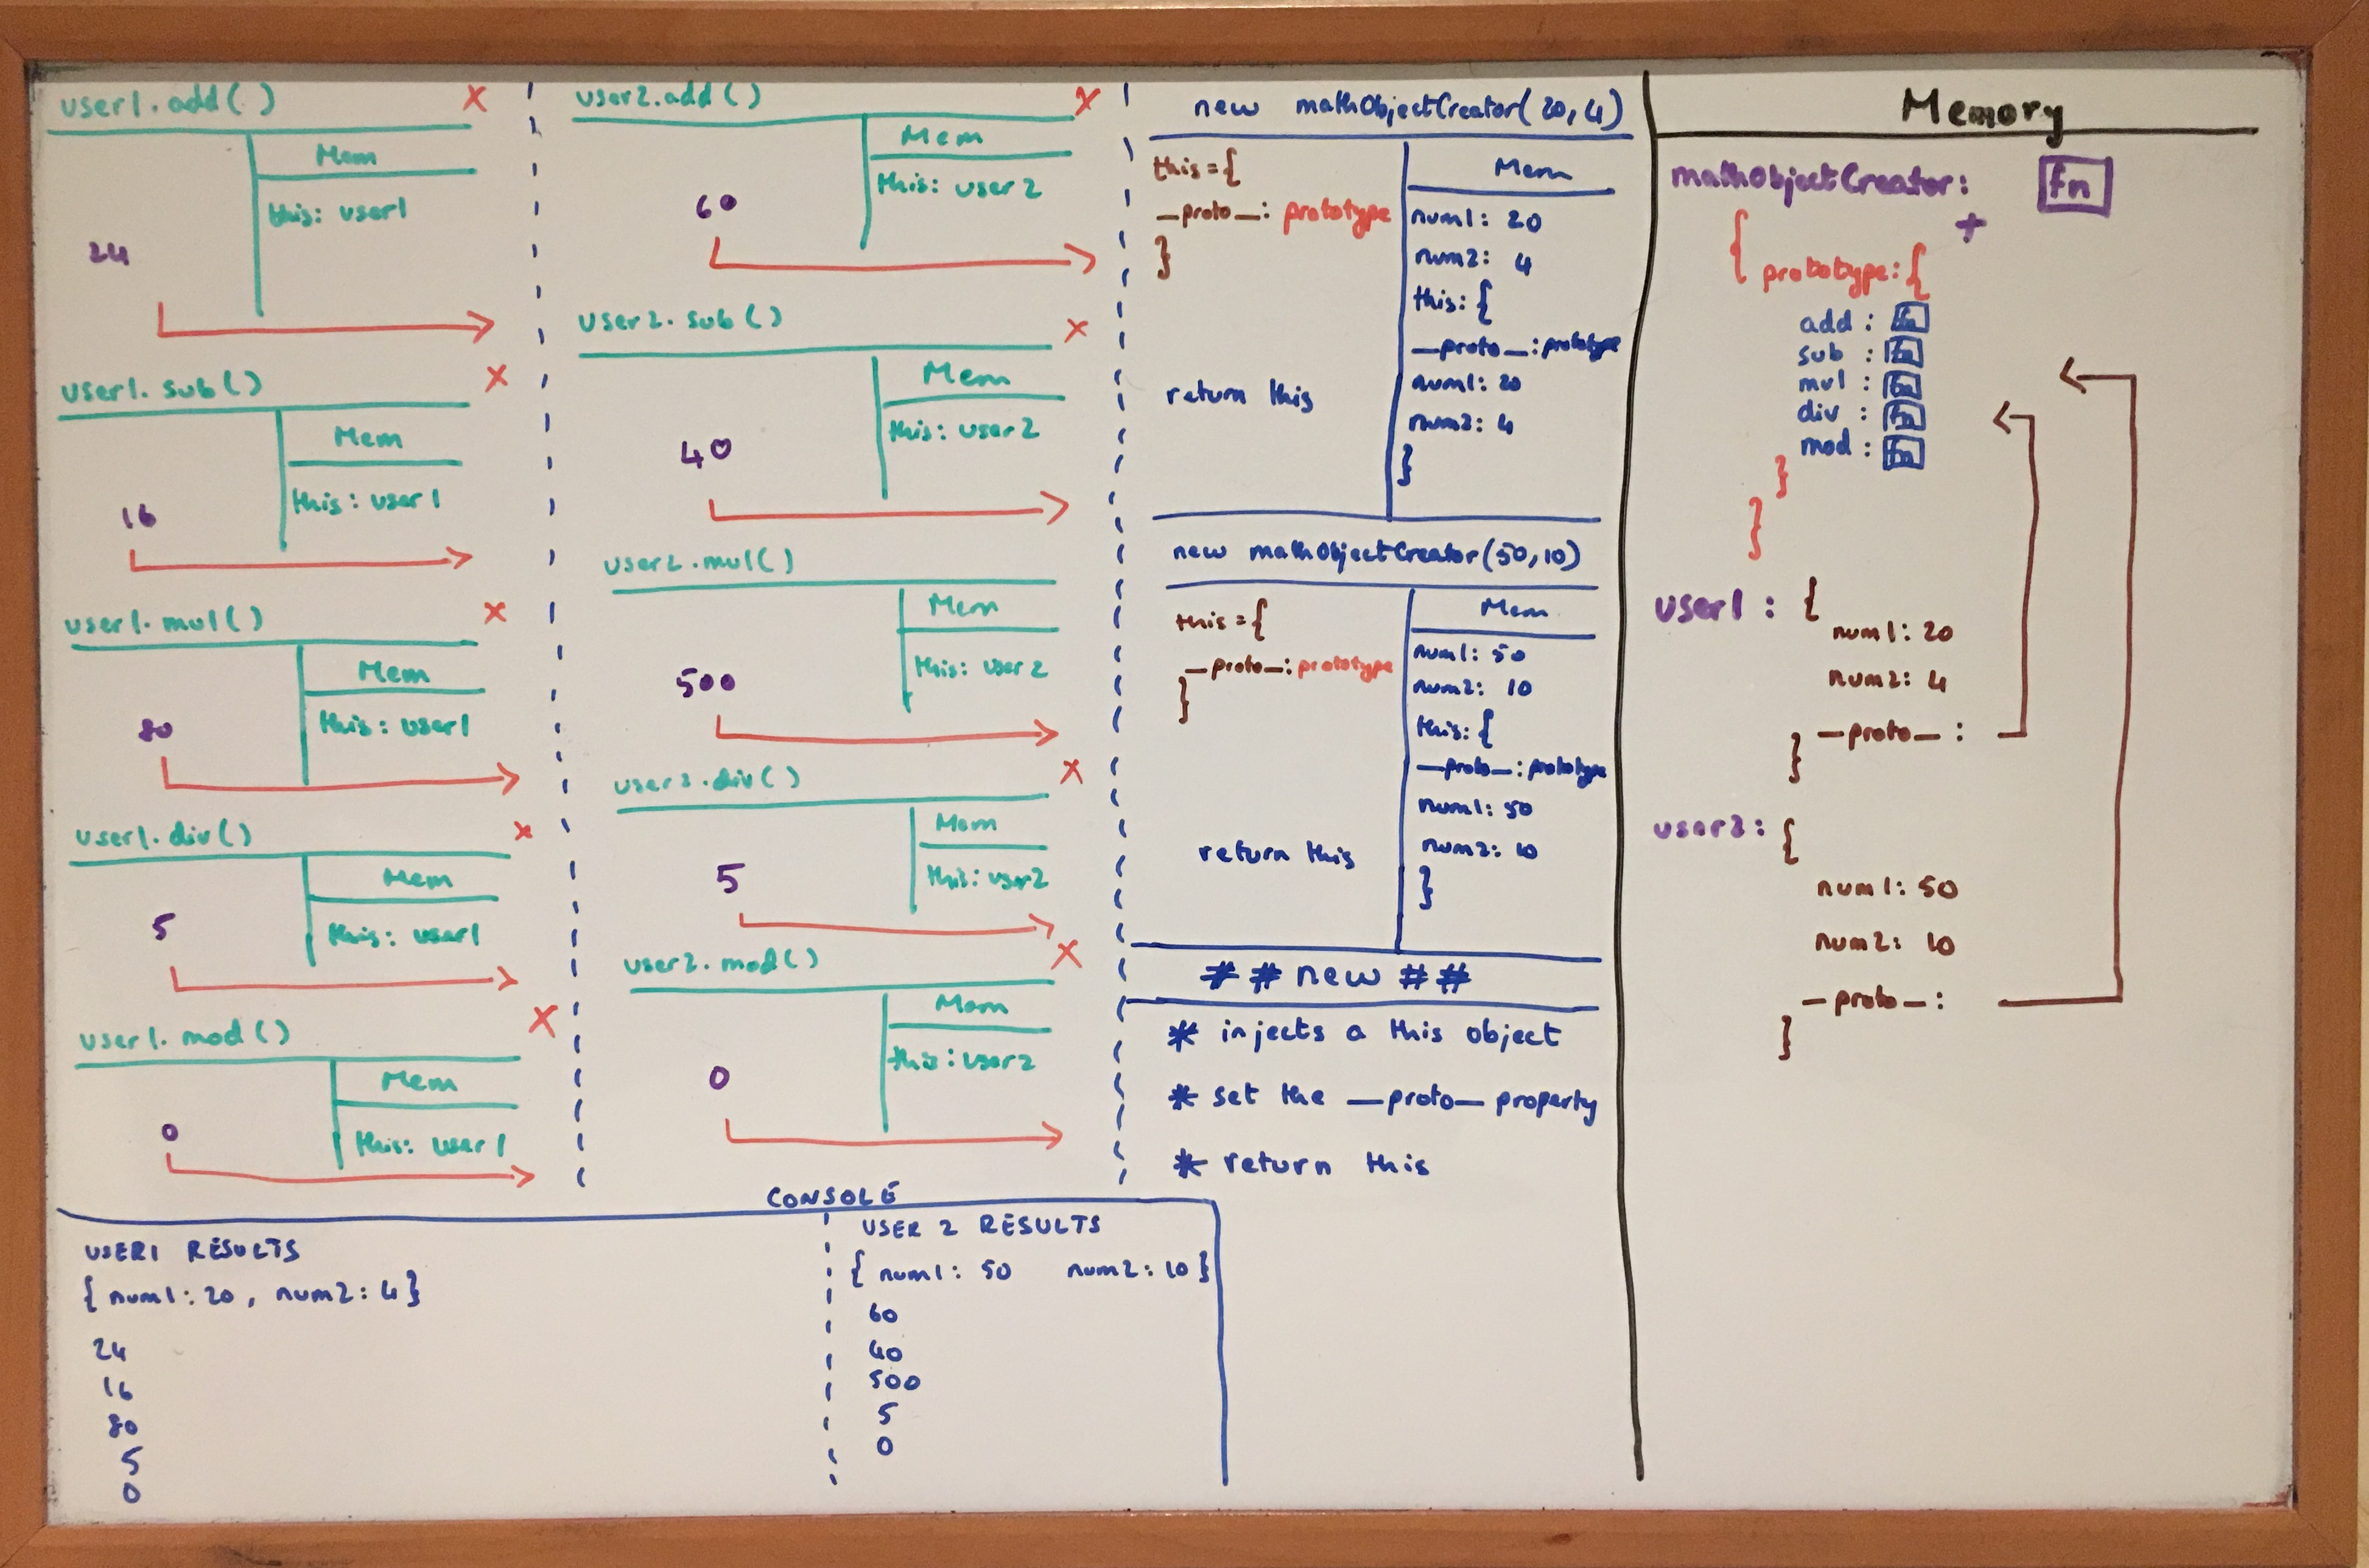 user1.add()
x
Mem
this: user1
24
user1.sub()
x
Mem
this: user1
16
user1.mul()
x
Mem
this: user1
80
user1.div()
x
Mem
this: user1
5
user1.mod()
x
Mem
this: user1
0
user2.add()
x
Mem
this: user2
60
user2.sub()
x
Mem
this: user2
40
user2.mul()
Mem
this: user2
500
user2.div()
x
Mem
this: user2
5
user2.mod()
x
Mem
this: user2
0
new mathObjectCreator(20,4)
this={
__proto__: prototype
}
return this
Mem
num1: 20
num2: 4
this: {
__proto__: prototype
num1: 20
num2: 4
}
new mathObjectCreator(50,10)
this={
__proto__: prototype
}
return this
Mem
num1: 50
num2: 10
this: {
__proto__: prototype
num1: 50
num2: 10
}
# # new # #
* injects a this object
* set the __proto__ property
* return this
Memory
mathObjectCreator: fn
+
{
prototype: {
add : fn
sub : fn
mul : fn
div : fn
mod : fn
}
}
user1 : {
num1: 20
num2: 4
__proto__ :
}
user2: {
num1: 50
num2: 10
__proto__ :
}
CONSOLE
USER1 RESULTS
{ num1: 20, num2: 4}
24
16
80
5
0
USER 2 RESULTS
{ num1: 50 num2: 10 }
60
40
500
5
0